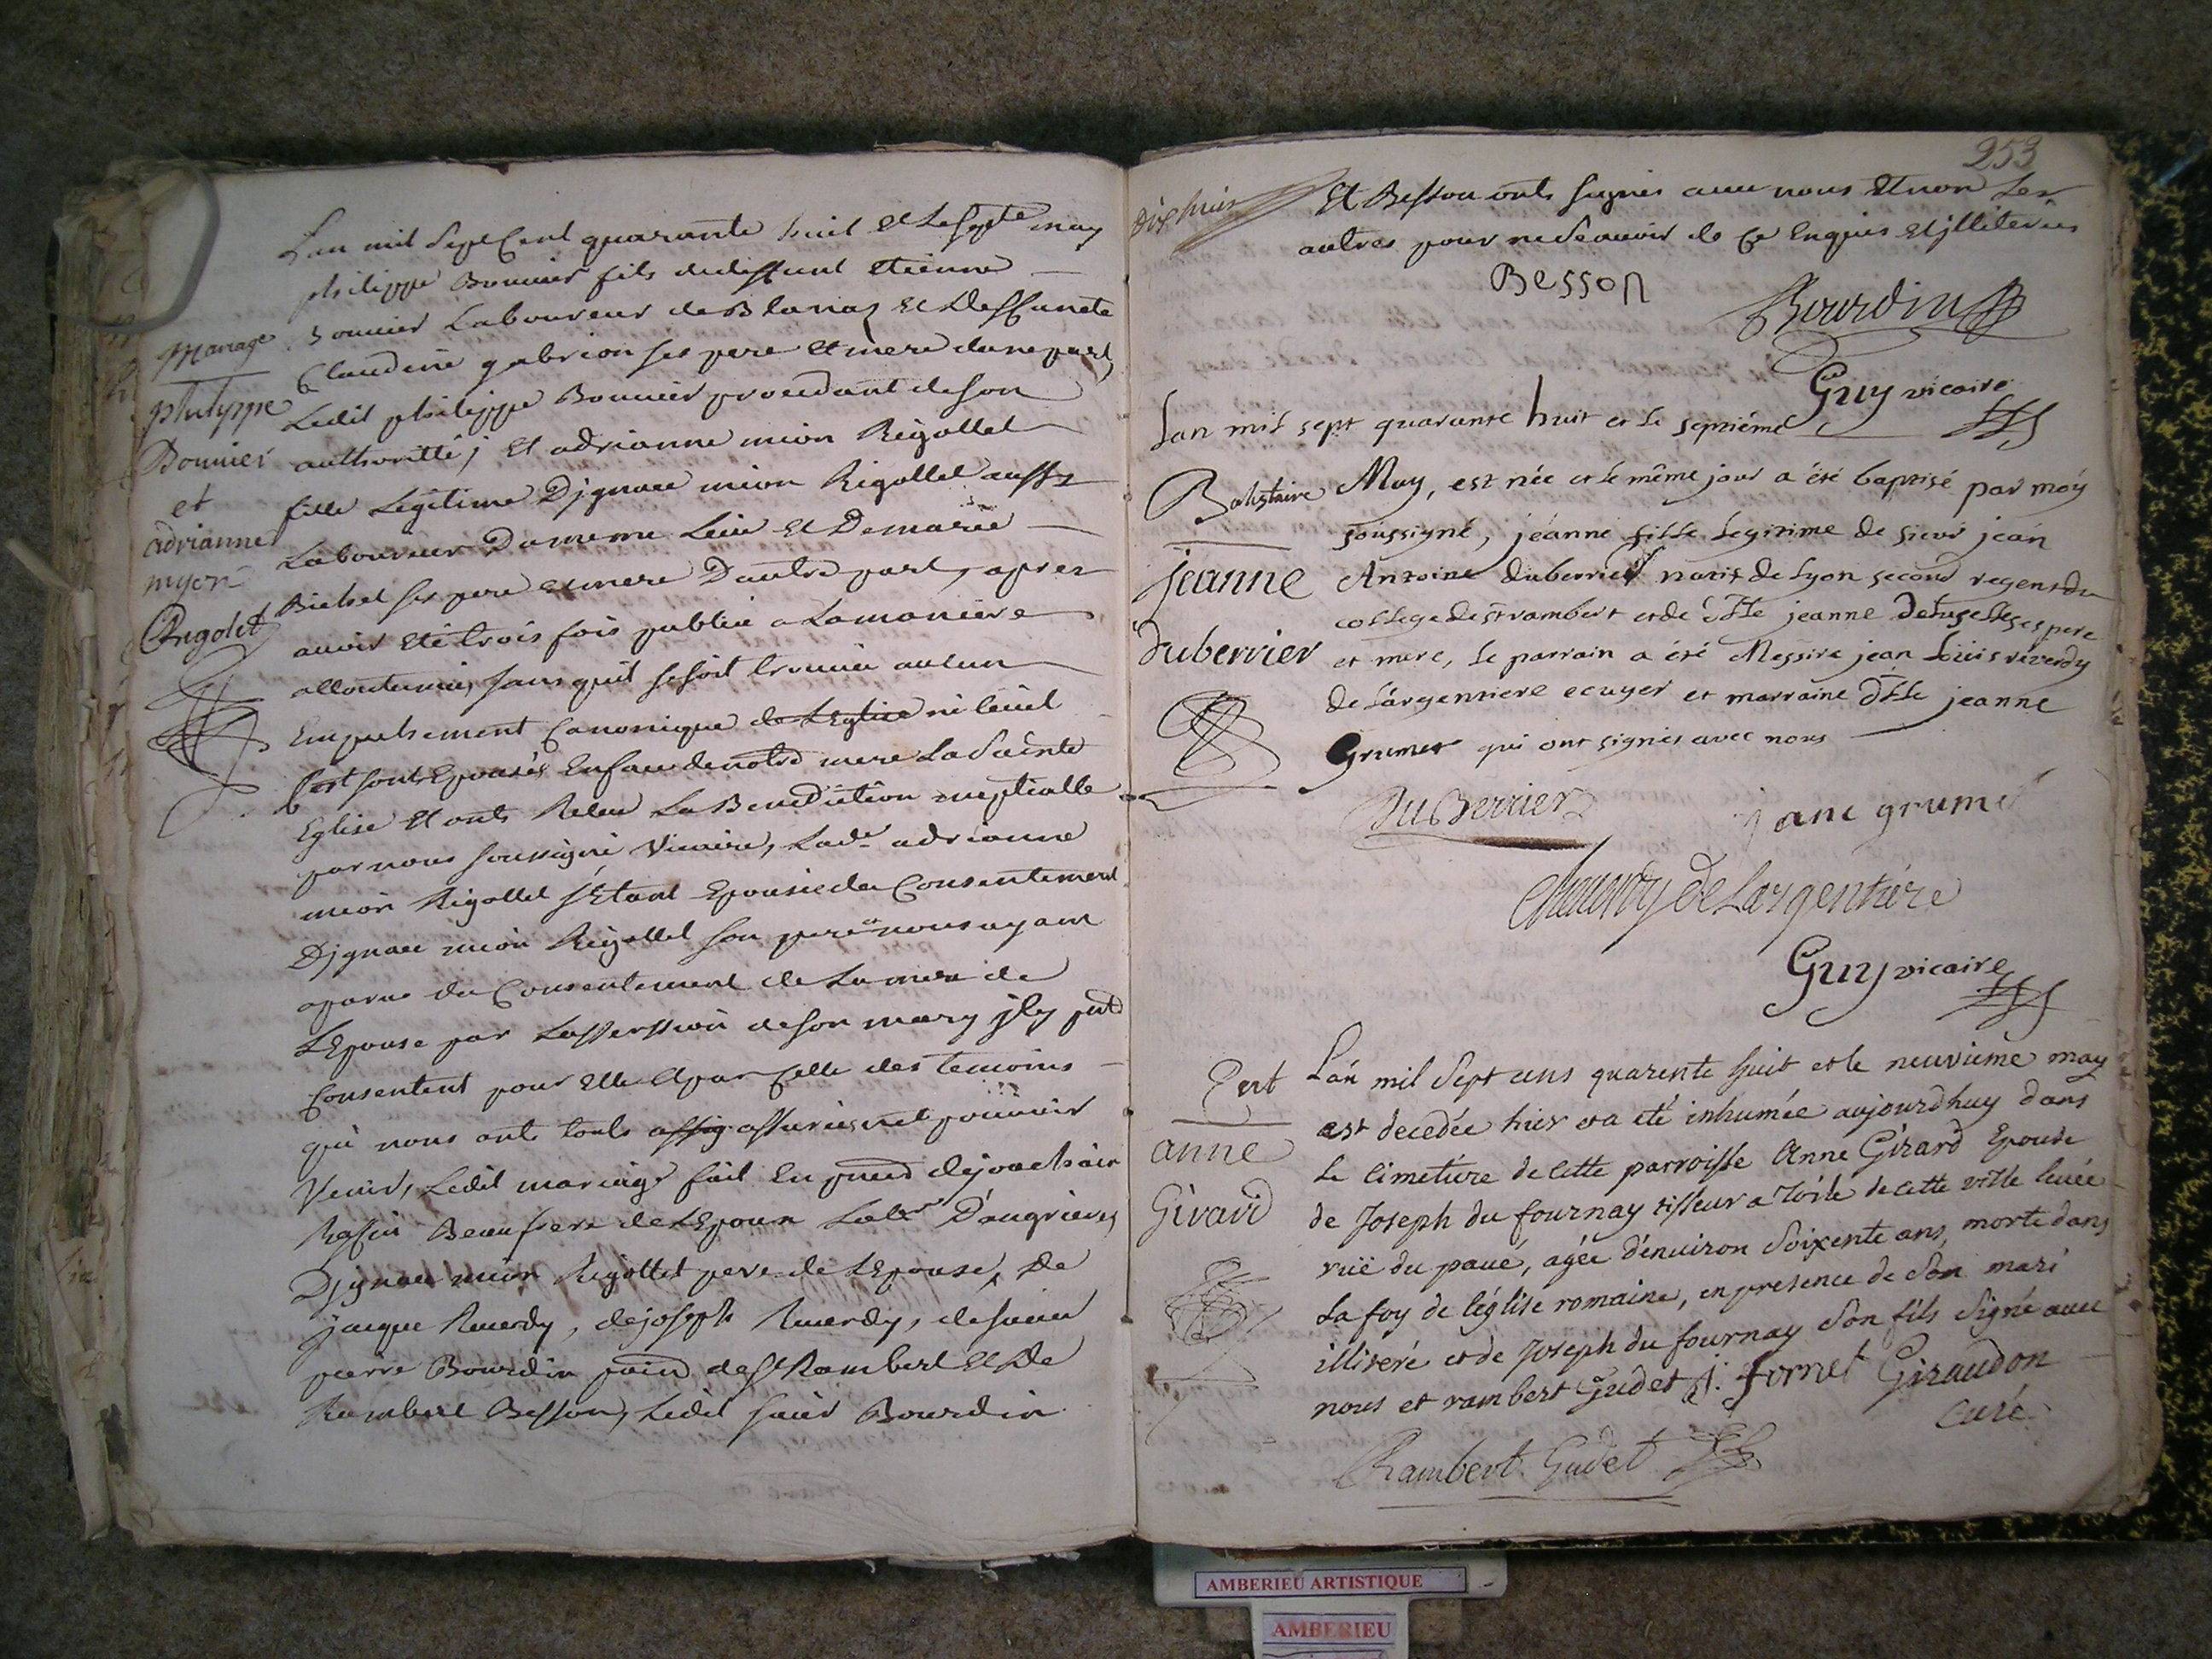 Lan mil Sept Cent quarante huit et Le sept.e may
philippe Bonnier fils dudeffunt etienne
Bonnier Laboureur de Blanaz et Deffuncte
Mariage
Claudine gabrion ses pere et mere dune part,
philyppe
Ledit philippe Bonnier procedant de son
Bonnier
authoritté; et adrianne mion Rigollet
et
fille Legitime Djgnace mion Rigollet aussy
adrianne
Laboureur Du meme Lieu et De marie
myon
Bichel ses pere et mere Dautre part, apres
Rigolet
avoir eté trois fois publiée a La maniere
accoutumée, sans quil se soit trouvée aucun
Empechement Canonique de LEglise ni Civil
sont Epousés En face de notre mere La Sainte
Eglise et onts Receu La Benediction nuptialle
par nous soussigné Vicaire, Lad.e adrianne
mion Rigollet s'Etant Epousée du Consentement
Djgnace mion Rigollet son pere nous ayant
aparus du Consentement de La mere de
LEpouse par Lassertion de son mary jly
Consentent pour Elle et par Celle des temoins
qui nous onts touts assig assurés
Venir, Ledit mariage fait En
Beaufrere de LEpoux Lab.r
Djgnace mion Rigollet pere de LEpouse, De
jacque Reverdy, de joseph Reverdy, de sieur
pierre Bourdin de St Rambert et De
Rambert Besson, Ledit sieur Bourdin
253
dixhuit
Et Besson onts signés avec nous et non Les
autres pour ne Scavoir de Ce Enquis et jlliterés
Besson
Bourdin
Guy vicaire
Lan mil sept quarante huit et le septiéme
Batistaire
May, est née et le même jour a été baptisé par moy
soussigné, jéanne fille Legitime de sieur jean
jeanne
Antoine duberrier natif de Lyon second regent du
duberrier
college de st rambert et de dlle jeanne ses pere
et mere, Le parrain a été Messire jean Loüis réverdy
de Largentiere ecuyer et marraine dlle jeanne
Grumet qui ont signés avec nous
Du Berrier
jane grumé
de Largentiére
Guy vicaire
Ent
L'án mil Sept cens quarente huit et le neuvieme may
est decedée hier et a eté inhumée aujourdhuy dans
anne
Le cimetiere de cette parroisse Anne Girard Epouse
Girard
de Joseph du fournay tisseur a toile de cette ville
rüe du pavé, agée d'environ Soixente ans, morte dans
La foy de l'église romaine, en presence de Son mari
illiteré et de Joseph du fournay Son fils Signé avec
nous et rambert Gudet J. fornet Giraudon
curé
Rambert Gudet
AMBERIEU ARTISTIQUE
AMBERIEU